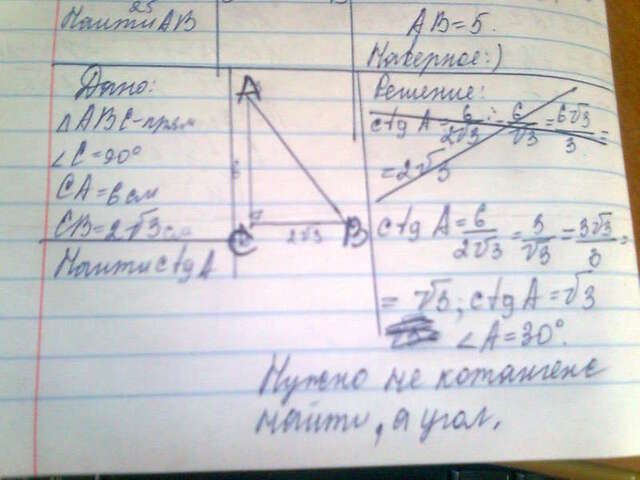 25
Найти AB
AB=5.
Наверное:)
Дано:
△ABC-прям
∠C=90°
CA=6см
CB=2√3см
Найти ctg A
A
6
C
2√3
B
Решение:
ctg A=6/2√3=6/√3=6√3/3=
=2√3
ctg A=6/2√3=3/√3=3√3/3=
=√3; ctg A=√3
∠A=30°.
Нужно не котангенс
найти, а угол.